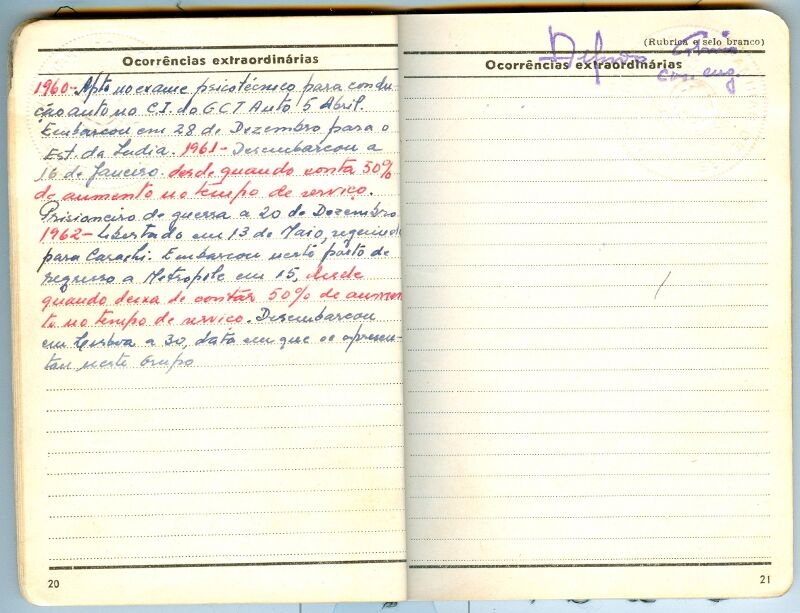 Ocorrências extraordinárias
1960- Apto no exame psicotécnico para condu-
ção auto no C.I. do GCT Auto 5 Abril.
Embarcou em 28 de Dezembro para o
Est. da India. 1961- Desembarcou a
16 de Janeiro. desde quando conta 50%
de aumento no tempo de serviço.
Prisioneiro de guerra a 20 de Dezembro
1962- Libertado em 13 de Maio, seguindo
para Carachi. Embarcou neste porto de
regresso a Metropole em 15, desde
quando deixa de contar 50% de aumen
to no tempo de serviço. Desembarcou
em Lisboa a 30, data em que se apresen-
tou neste Grupo
20
(Rubrica e selo branco)
Ocorrências extraordinárias
21